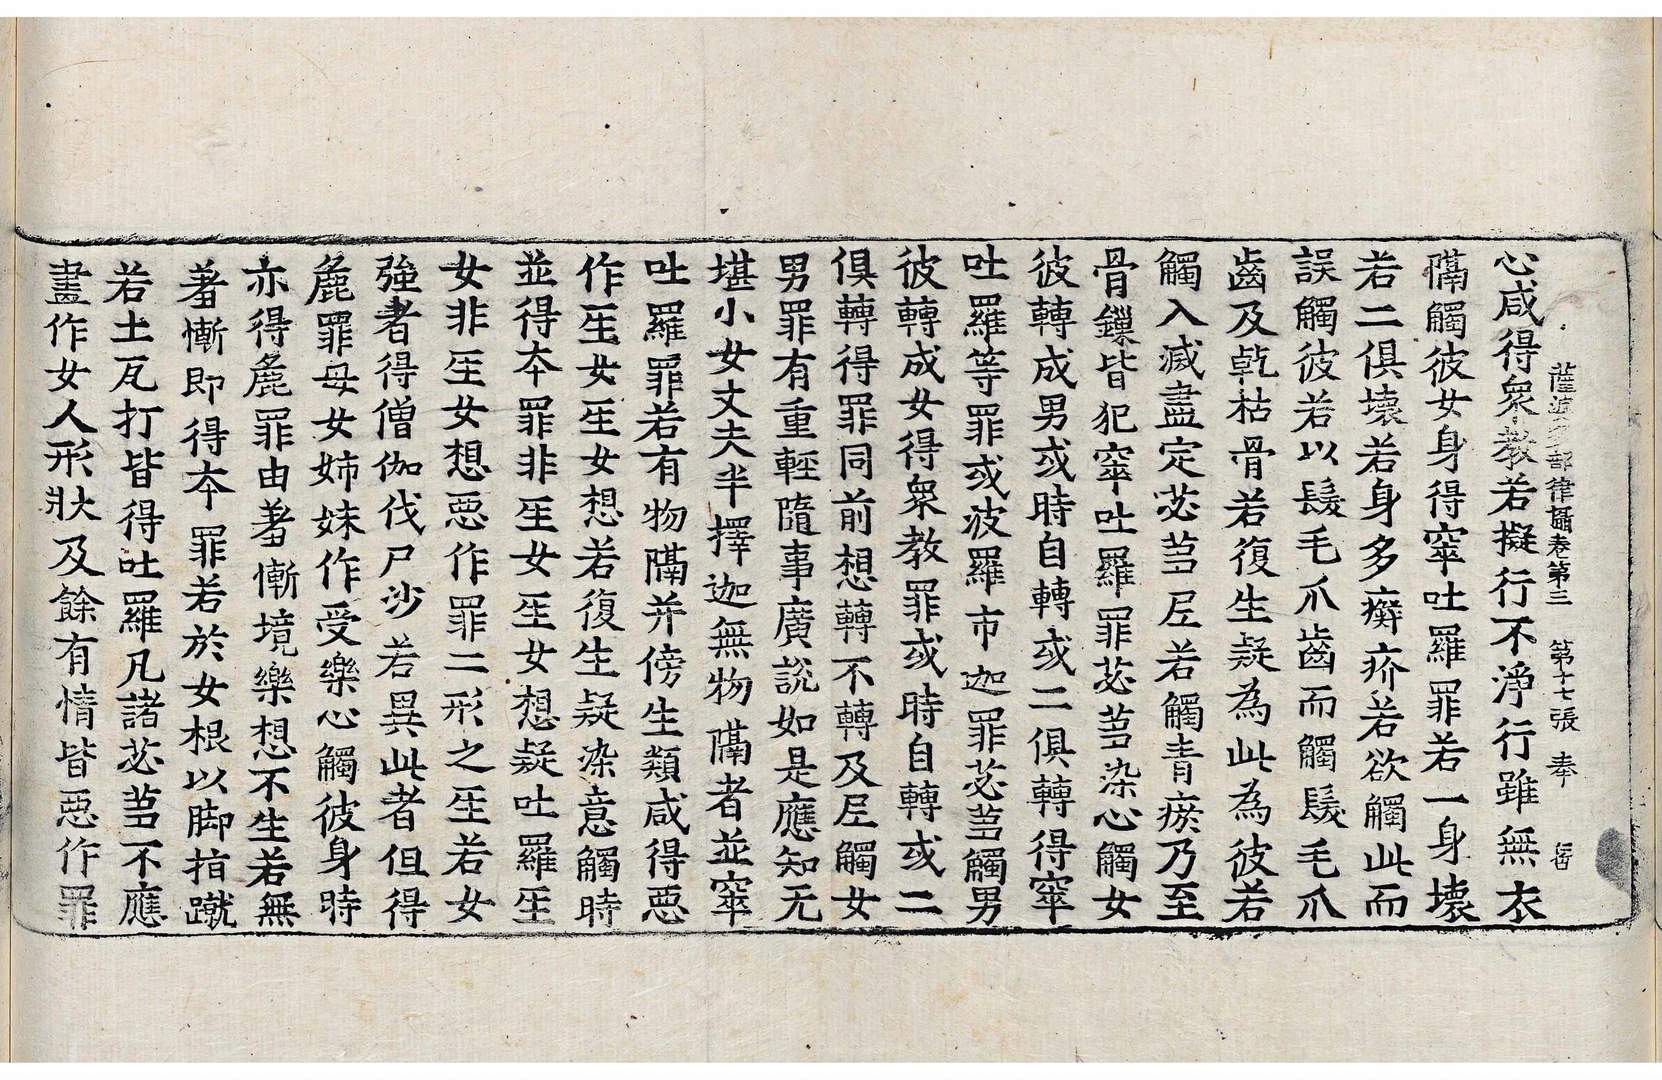 薩波多部律攝卷第三　第十七張　奉
心咸得衆教若擬行不淨行雖無衣
隔觸彼女身得窣吐羅罪若一身壞
若二俱壞若身多癬疥若欲觸此而
誤觸彼若以髮毛爪齒而觸髮毛爪
齒及乾枯骨若復生疑為此為彼若
觸入滅盡定苾芻尼若觸青瘀乃至
骨鏁皆犯窣吐羅罪苾芻染心觸女
彼轉成男或時自轉或二俱轉得窣
吐羅等罪或波羅市迦罪苾芻觸男
彼轉成女得衆教罪或時自轉或二
俱轉得罪同前想轉不轉及尼觸女
男罪有重輕隨事廣說如是應知无
堪小女丈夫半擇迦無物隔者並窣
吐羅罪若有物隔并傍生類咸得惡
作㞷女㞷女想若復生疑染意觸時
並得本罪非㞷女㞷女想疑吐羅㞷
女非㞷女想惡作罪二形之㞷若女
強者得僧伽伐尸沙若異此者但得
麁罪母女姉妹作受樂心觸彼身時
亦得麁罪由著慚境樂想不生若無
著慚即得本罪若於女根以脚指蹴
若土瓦打皆得吐羅凡諸苾芻不應
畫作女人形狀及餘有情皆惡作罪